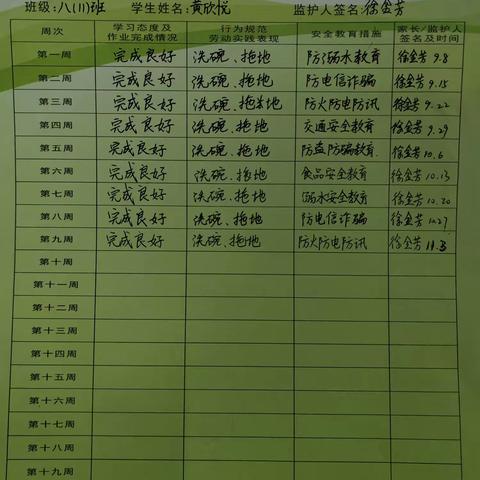 班级:八(11)班 学生姓名:黄欣悦 监护人签名:徐金芳
周次 学习态度及作业完成情况 行为规范劳动实践表现 安全教育措施 家长/监护人签名及时间
第一周 完成良好 洗碗、拖地 防溺水教育 徐金芳 9.8
第二周 完成良好 洗碗、拖地 防电信诈骗 徐金芳 9.15
第三周 完成良好 洗碗、拖地 防火防电防讯 徐金芳 9.22
第四周 完成良好 洗碗、拖地 交通安全教育 徐金芳 9.29
第五周 完成良好 洗碗、拖地 防盗防骗教育 徐金芳 10.6
第六周 完成良好 洗碗、拖地 食品安全教育 徐金芳 10.13
第七周 完成良好 洗碗、拖地 溺水安全教育 徐金芳 10.20
第八周 完成良好 洗碗、拖地 防电信诈骗 徐金芳 10.27
第九周 完成良好 洗碗、拖地 防火防电防讯 徐金芳 11.3
第十周
第十一周
第十二周
第十三周
第十四周
第十五周
第十六周
第十七周
第十八周
第十九周